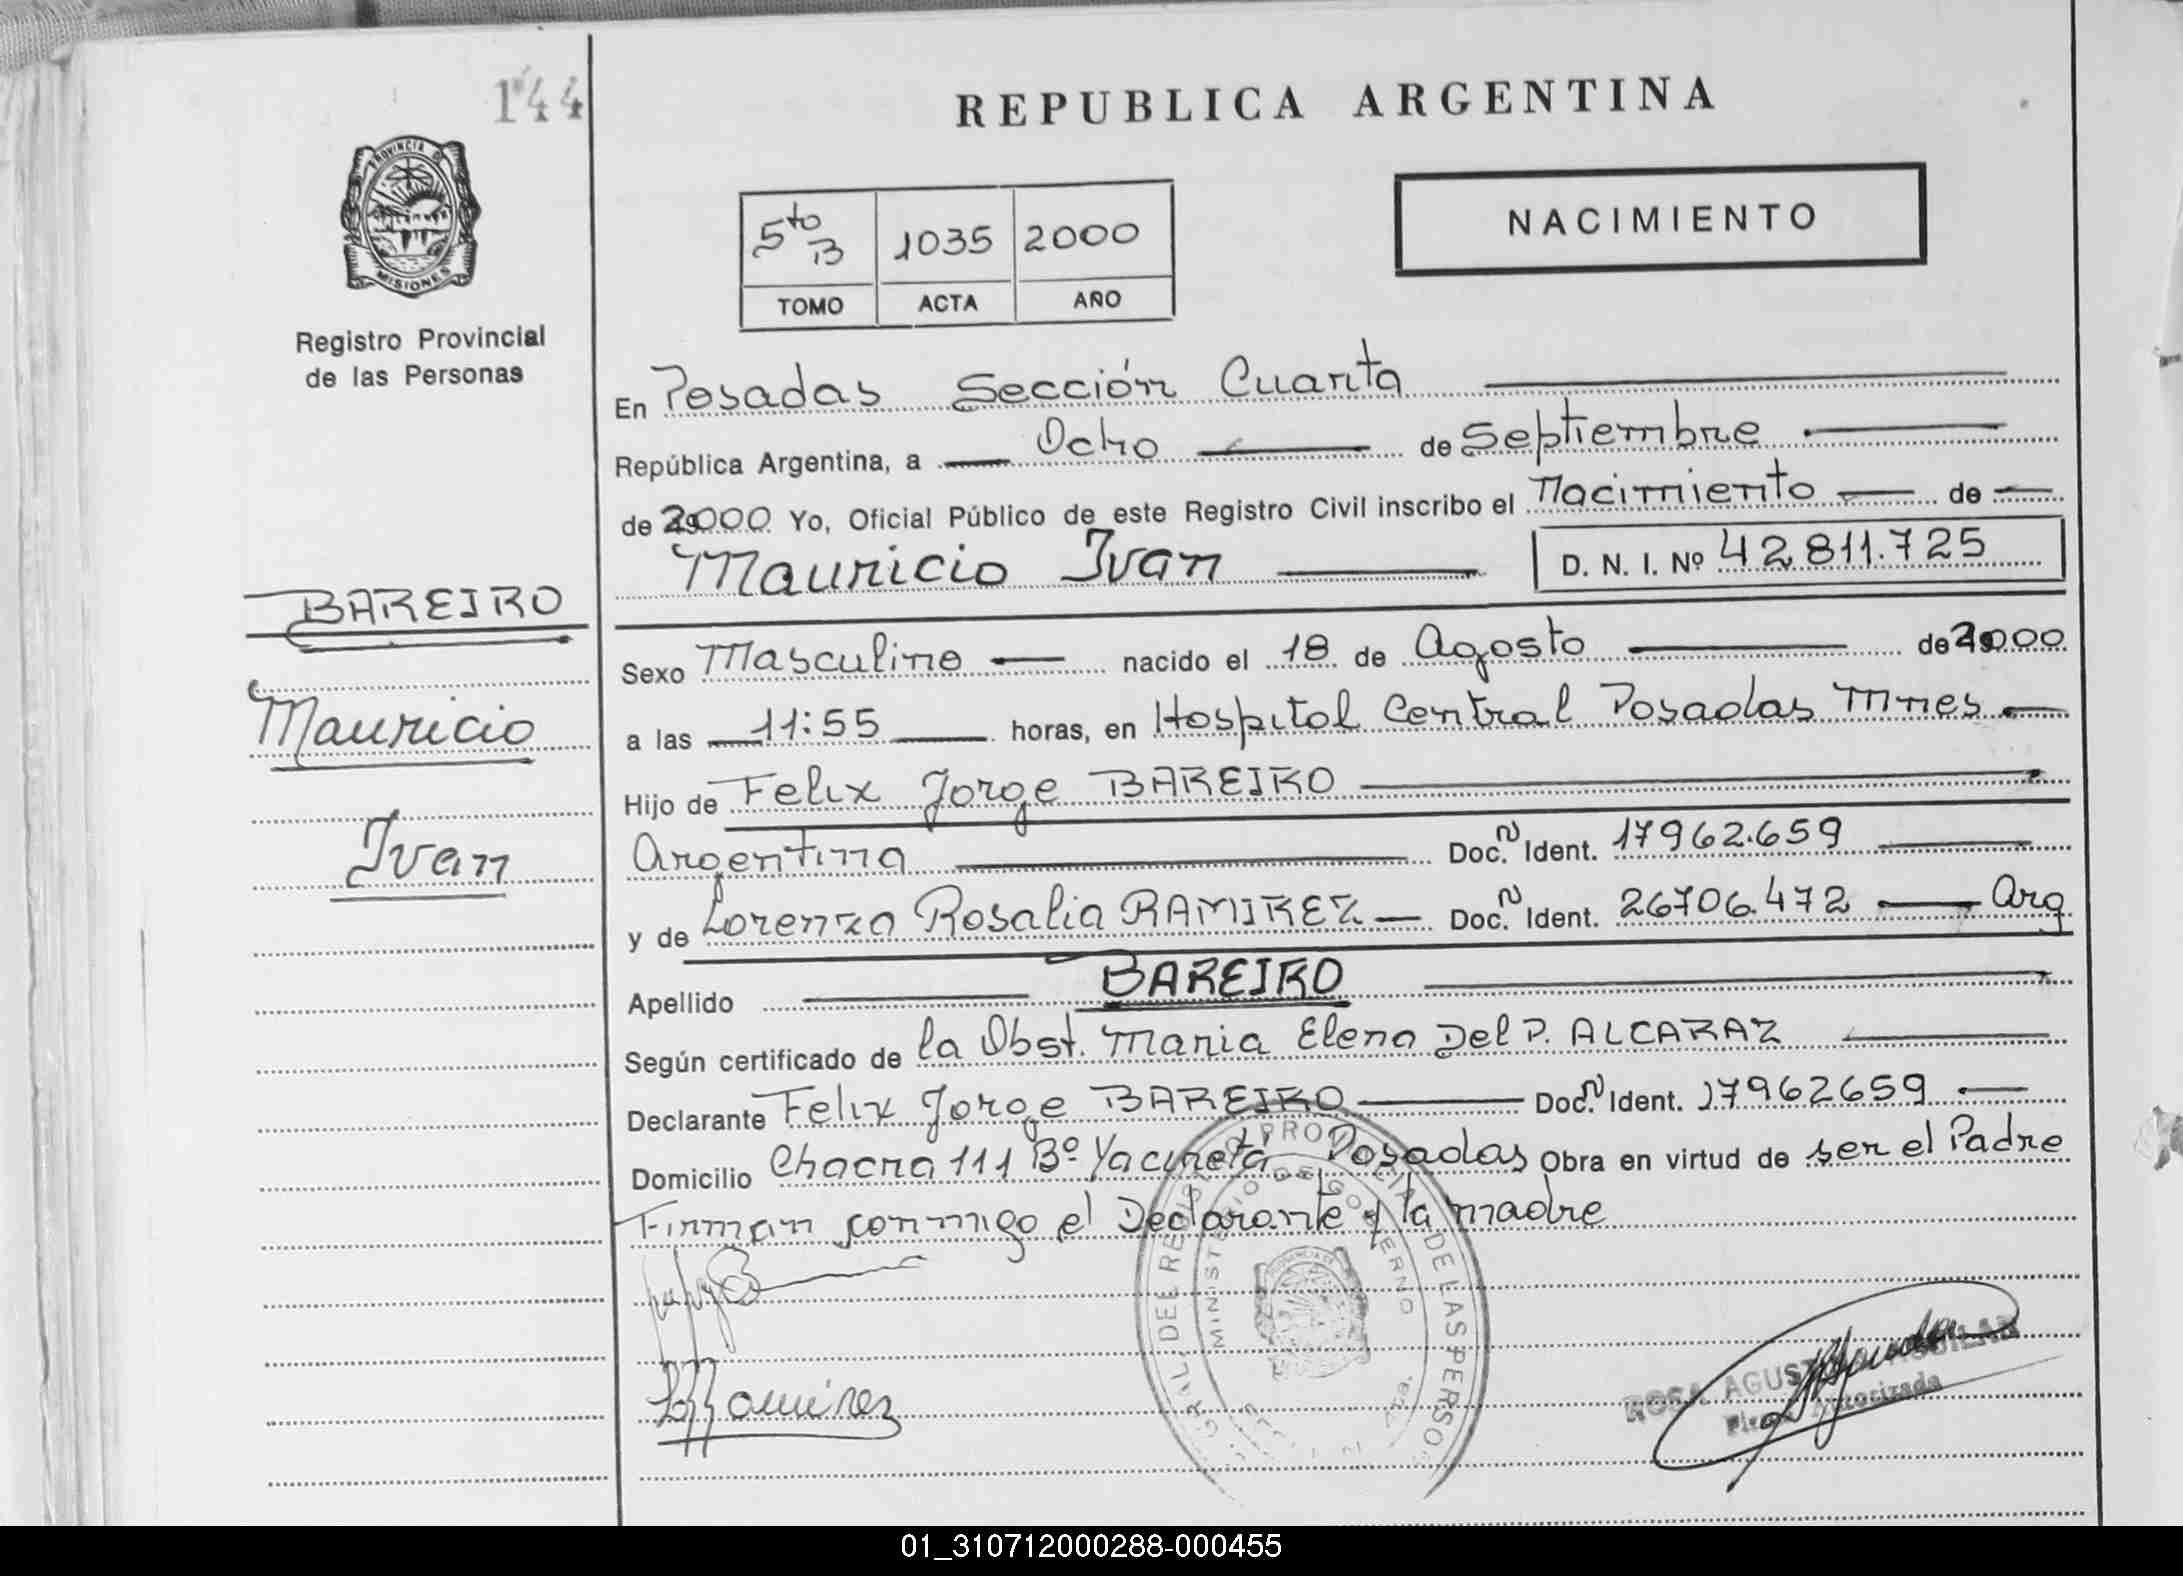 144
REPUBLICA ARGENTINA
PROVINCIA DE
MISIONES
Registro Provincial
de las Personas
5to B 1035 2000
TOMO ACTA AÑO
NACIMIENTO
En Posadas Sección Cuarta
República Argentina, a Ocho de Septiembre
de 2000 Yo, Oficial Público de este Registro Civil inscribo el Nacimiento de
Mauricio Ivan D. N. I. Nº 42.811.725
BAREIRO
Mauricio
Ivan
Sexo Masculino nacido el 18 de Agosto de 2000
a las 11:55 horas, en Hospital Central Posadas Mnes
Hijo de Felix Jorge BAREIRO
Argentina Doc. N Ident. 17962.659
y de Lorenza Rosalia RAMIREZ Doc. N Ident. 26706.472 Arg
Apellido BAREIRO
Según certificado de la Obst. Maria Elena Del P. ALCARAZ
Declarante Felix Jorge BAREIRO Doc. N Ident. 17962659
Domicilio Chacra 111 Bº Yacireta Posadas Obra en virtud de ser el Padre
Firman conmigo el Declarante y la madre
GRAL. DEL REGISTRO PROVINCIAL DE LAS PERSO
MINISTERIO DE GOBIERNO
Ramirez
ROSA AGUS AGUILAR
Firma Autorizada
01_310712000288-000455